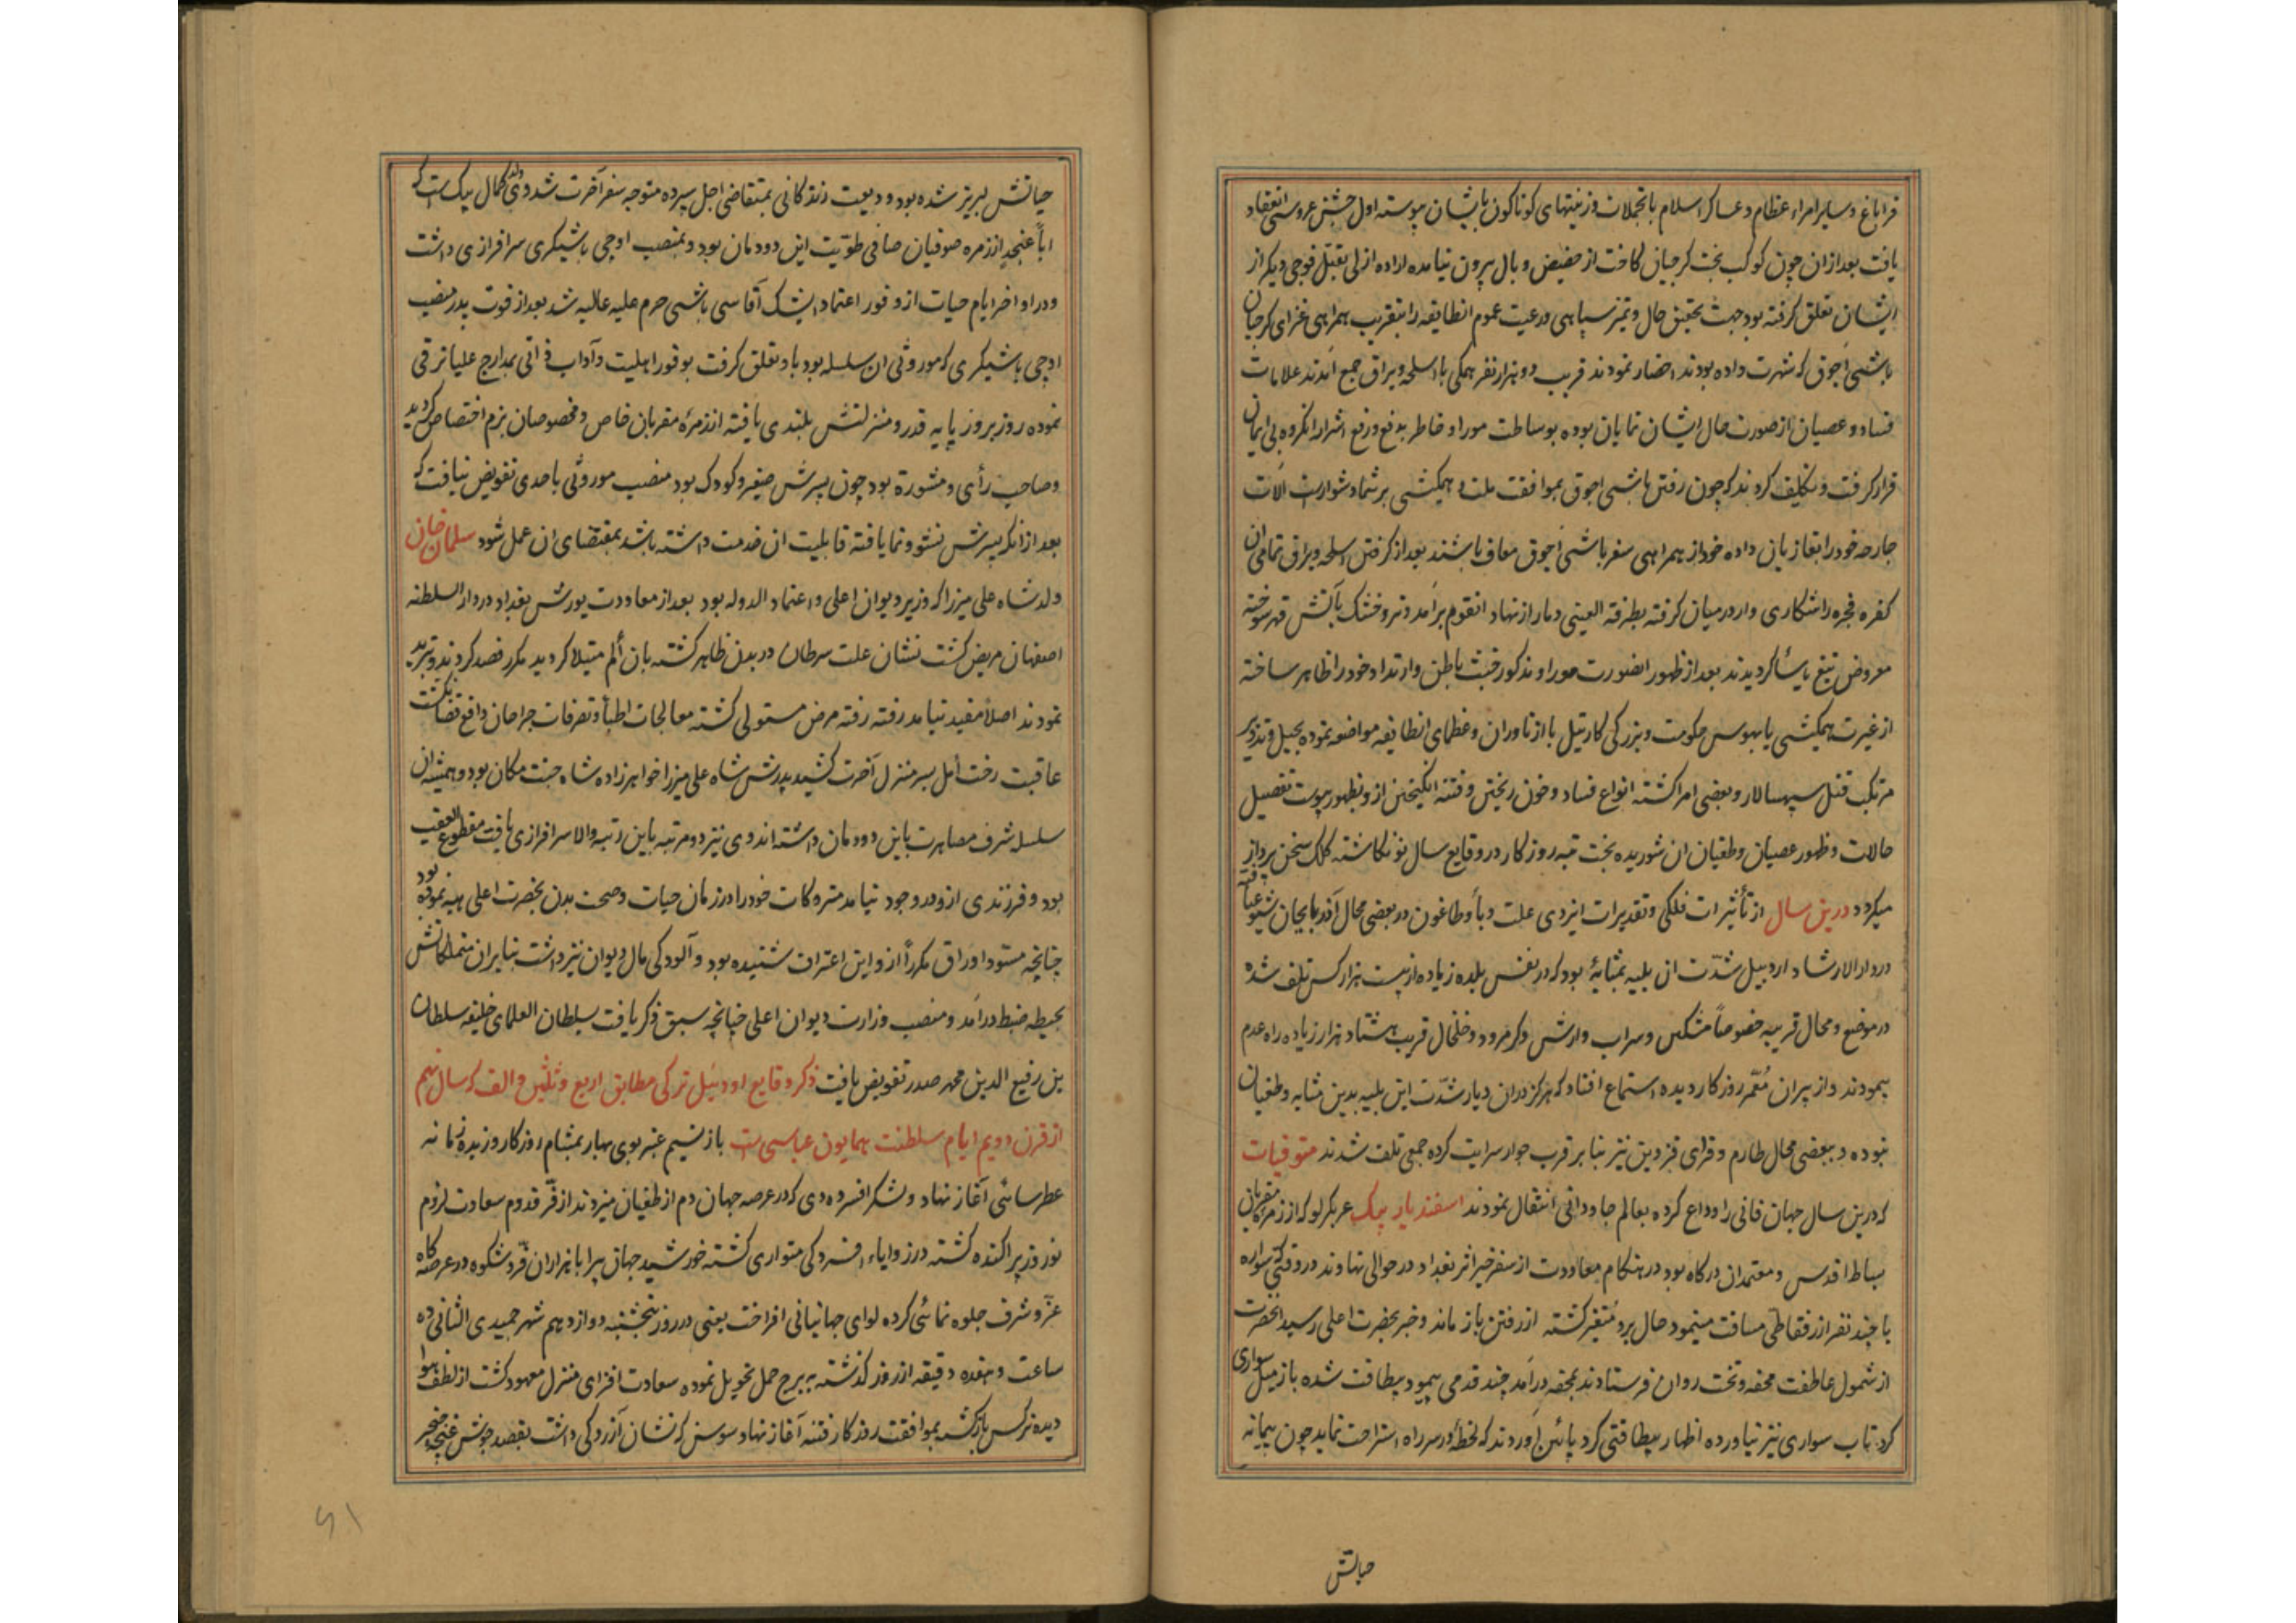 قراباغ و سایر امراء عظام و عساکر اسلام با تجملات و زینتهای کوناکون بایشان پیوسته اول جشن عروسی انعقاد
یافت بعد از ان چون کوکب بخت کرجیان کاخت از حضیض وبال بیرون نیامده اراده ازلی بقتل فوجی دیکر از
ایشان تعلق کرفته بود جهت تحقیق حال و تمیز سپاهی و رعیت عموم انطایفه را بتقریب همراهی غزای کرجیان
باشی اچوق که شهرت داده بودند احضار نمودند قریب دو هزار نفر همکی با اسلحه و یراق جمع آمدند علامات
فساد و عصیان از صورت حال ایشان نمایان بوده بوساطت موراو خاطر بدفع و رفع اشرار انکروه بی ایمان
قرار کرفت و تکلیف کردند که چون رفتن باشی اچوق بموافقت ملت و همکیشی بر شما دشوارست آلات
جارحه خود را بغازیان داده خود از همراهی سفر باشی اچوق معاف باشند بعد از کرفتن اسلحه و یراق تمامی ان
کفره فجره را شکاری وار در میان کرفته بطرفة العینی دمار از نهاد انقوم برآمد و تر و خشک بآتش قهر سوخته
معروض تیغ یاسا کردیدند بعد از ظهور اینصورت موراو مذکور خبث باطن و ارتداد خود را ظاهر ساخته
از غیرت همکیشی یا بهوس حکومت و بزرکی کارتیل با ازناوران و عظمای انطایفه مواضعه نموده بحیل و تذویر
مرتکب قتل سپهسالار و بعضی امرا کشته انواع فساد و خون ریختن و فتنه انکیختن از و بظهور پیوست تفصیل
حالات و ظهور عصیان و طغیان ان شوریده بخت تیره روزکار در وقایع سال نو نکاشته کلک سخن پرداز
میکردد درین سال از تأثیرات فلکی و تقدیرات ایزدی علت وبا و طاعون در بعضی محال آذربایجان شیوع یافته
در دار الارشاد اردبیل شدّت ان بلیه بمثابهٔ بود که در نفس بلده زیاده از بیست هزار کس تلف شده
در موضع و محال قریبه خصوصاً مشکین و سراب و ارشق و کرمرود و خلخال قریب هشتاد هزار زیاده راه عدم
پیمودند و از پیران مُعمّر روزکار دیده استماع افتاد که هرکز دران دیار شدّت این بلیه بدین مثابه و طغیان
نبوده و ببعضی محال طارم و قرای قزوین نیز بنا بر قرب جوار سرایت کرده جمعی تلف شدند متوفیات
که درین سال جهان فانی را وداع کرده بعالم جاودانی انتقال نمودند اسفندیار بیک عربکرلو که از زمره مقربان
بساط اقدس و معتمدان درکاه بود در هنکام معاودت از سفر خیر اثر بغداد در حوالی نهاوند در وقتی که سواره
با چند نفر از رفقا طی مسافت مینمود حال برو متغیر کشته از رفتن باز ماند و خبر بحضرت اعلی رسید انحضرت
از شمول عاطفت محفه و تخت روان فرستادند بمحفه درآمد چند قدمی پیمود بیطاقت شده باز میل سواری
کرد تاب سواری نیز نیاورده اظهار بیطاقتی کرد پائین آوردند که لحظهٔ در سر راه استراحت نماید چون پیمانه
حیاتش
حیاتش لبریز شده بود ودیعت زندکانی بمتقاضی اجل سپرده متوجه سفر آخرت شد و وی ولد کمال بیک است که
اباً عن جدٍ از زمره صوفیان صافی طوّیت این دودمان بود و بمنصب اوجی باشیکری سرافرازی داشت
و در اواخر ایام حیات از وفور اعتماد ایشک آقاسی باشی حرم علیه عالیه شد بعد از فوت پدر منصب
اوجی باشیکری که موروثی ان سلسله بود باو تعلق کرفت بوفور اهلیت و آداب ذاتی بمدارج علیا ترقی
نموده روز بروز پایه قدر و منزلتش بلندی یافته از زمرهٔ مقربان خاص و مخصوصان بزم اختصاص کردید
و صاحب رأی و مشورة بود چون پسرش صغیر و کودک بود منصب موروثی باحدی تفویض نیافت که
بعد از انکه پسرش نشو و نما یافته قابلیت ان خدمت داشته باشد بمقتضای ان عمل شود سلمان خان
ولد شاه علی میرزا که وزیر دیوان اعلی و اعتماد الدوله بود بعد از معاودت یورش بغداد در دار السلطنه
اصفهان مریض کشت نشان علت سرطان در بدن ظاهر کشته بان ألم مبتلا کردید مکرر فصد کردند و تبرید
نمودند اصلاً مفید نیامد رفته رفته مرض مستولی کشته معالجات اطبا و تصرفات جراحان دافع قضا نکشت
عاقبت رخت أمل بسر منزل آخرت کشید پدرش شاه علی میرزا خواهر زاده شاه جنت مکان بود و همیشه ان
سلسله شرف مصاهرت باین دودمان داشته اند وی نیز دو مرتبه باین رتبه والا سرافرازی یافت مقطوع العقب
بود و فرزندی ازو در وجود نیامد متروکات خود را در زمان حیات و صحت بدن بحضرت اعلی هبه نموده بود
چنانچه مسوّد اوراق مکرراً ازو این اعتراف شنیده بود و آلودکی مال دیوان نیز داشت بنابر ان متملکاتش
بحیطه ضبط درآمد و منصب وزارت دیوان اعلی چنانچه سبق ذکر یافت بسلطان العلمای خلیفه سلطان
بن رفیع الدین محمد صدر تفویض یافت ذکر وقایع اودئیل ترکی مطابق اربع و ثلثین و الف که سال نهم
از قرن دویم ایام سلطنت همایون عباسی است باز نسیم عنبر بوی بهار بمشام روزکار و زبدهٔ زمانه
عطرسائی آغاز نهاد و لشکر افسرده دی که در عرصه جهان دم از طغیان میزدند از فرّ قدوم سعادت لزوم
نوروز پراکنده کشته در زوایاء افسردکی متواری کشته خورشید جهان پیرا با هزاران فرّ و شکوه در عرصه کاه
عزّ و شرف جلوه نمائی کرده لوای جهانبانی افراخت یعنی در روز پنجشنبه دوازدهم شهر جمیدی الثانی ده
ساعت و هفده دقیقه از روز کذشته به برج حمل تحویل نموده سعادت افزای منزل معهود کشت از لطف هوا
دیده نرکس باز کشته بموافقت روزکار فتنه آغاز نهاد سوسن که نشان آزردکی داشت بقصد جوشن غنچه خنجر
۶۱